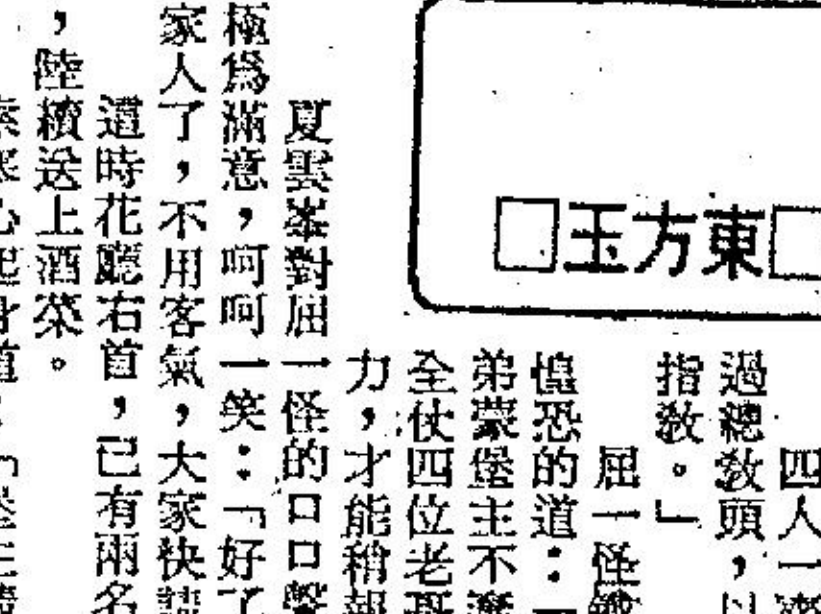 東方玉
四人一
過總教頭，以
指教。」
屈一怪
惶恐的道：「
弟蒙堡主不
全仗四位老哥
力，才能稍報
夏雲峯對屈一怪的口口聲
極為滿意，呵呵一笑：「好了
家人了，不用客氣，大家快請
這時花廳右首，已有兩名
，陸續送上酒菜。
起身道：「堡主